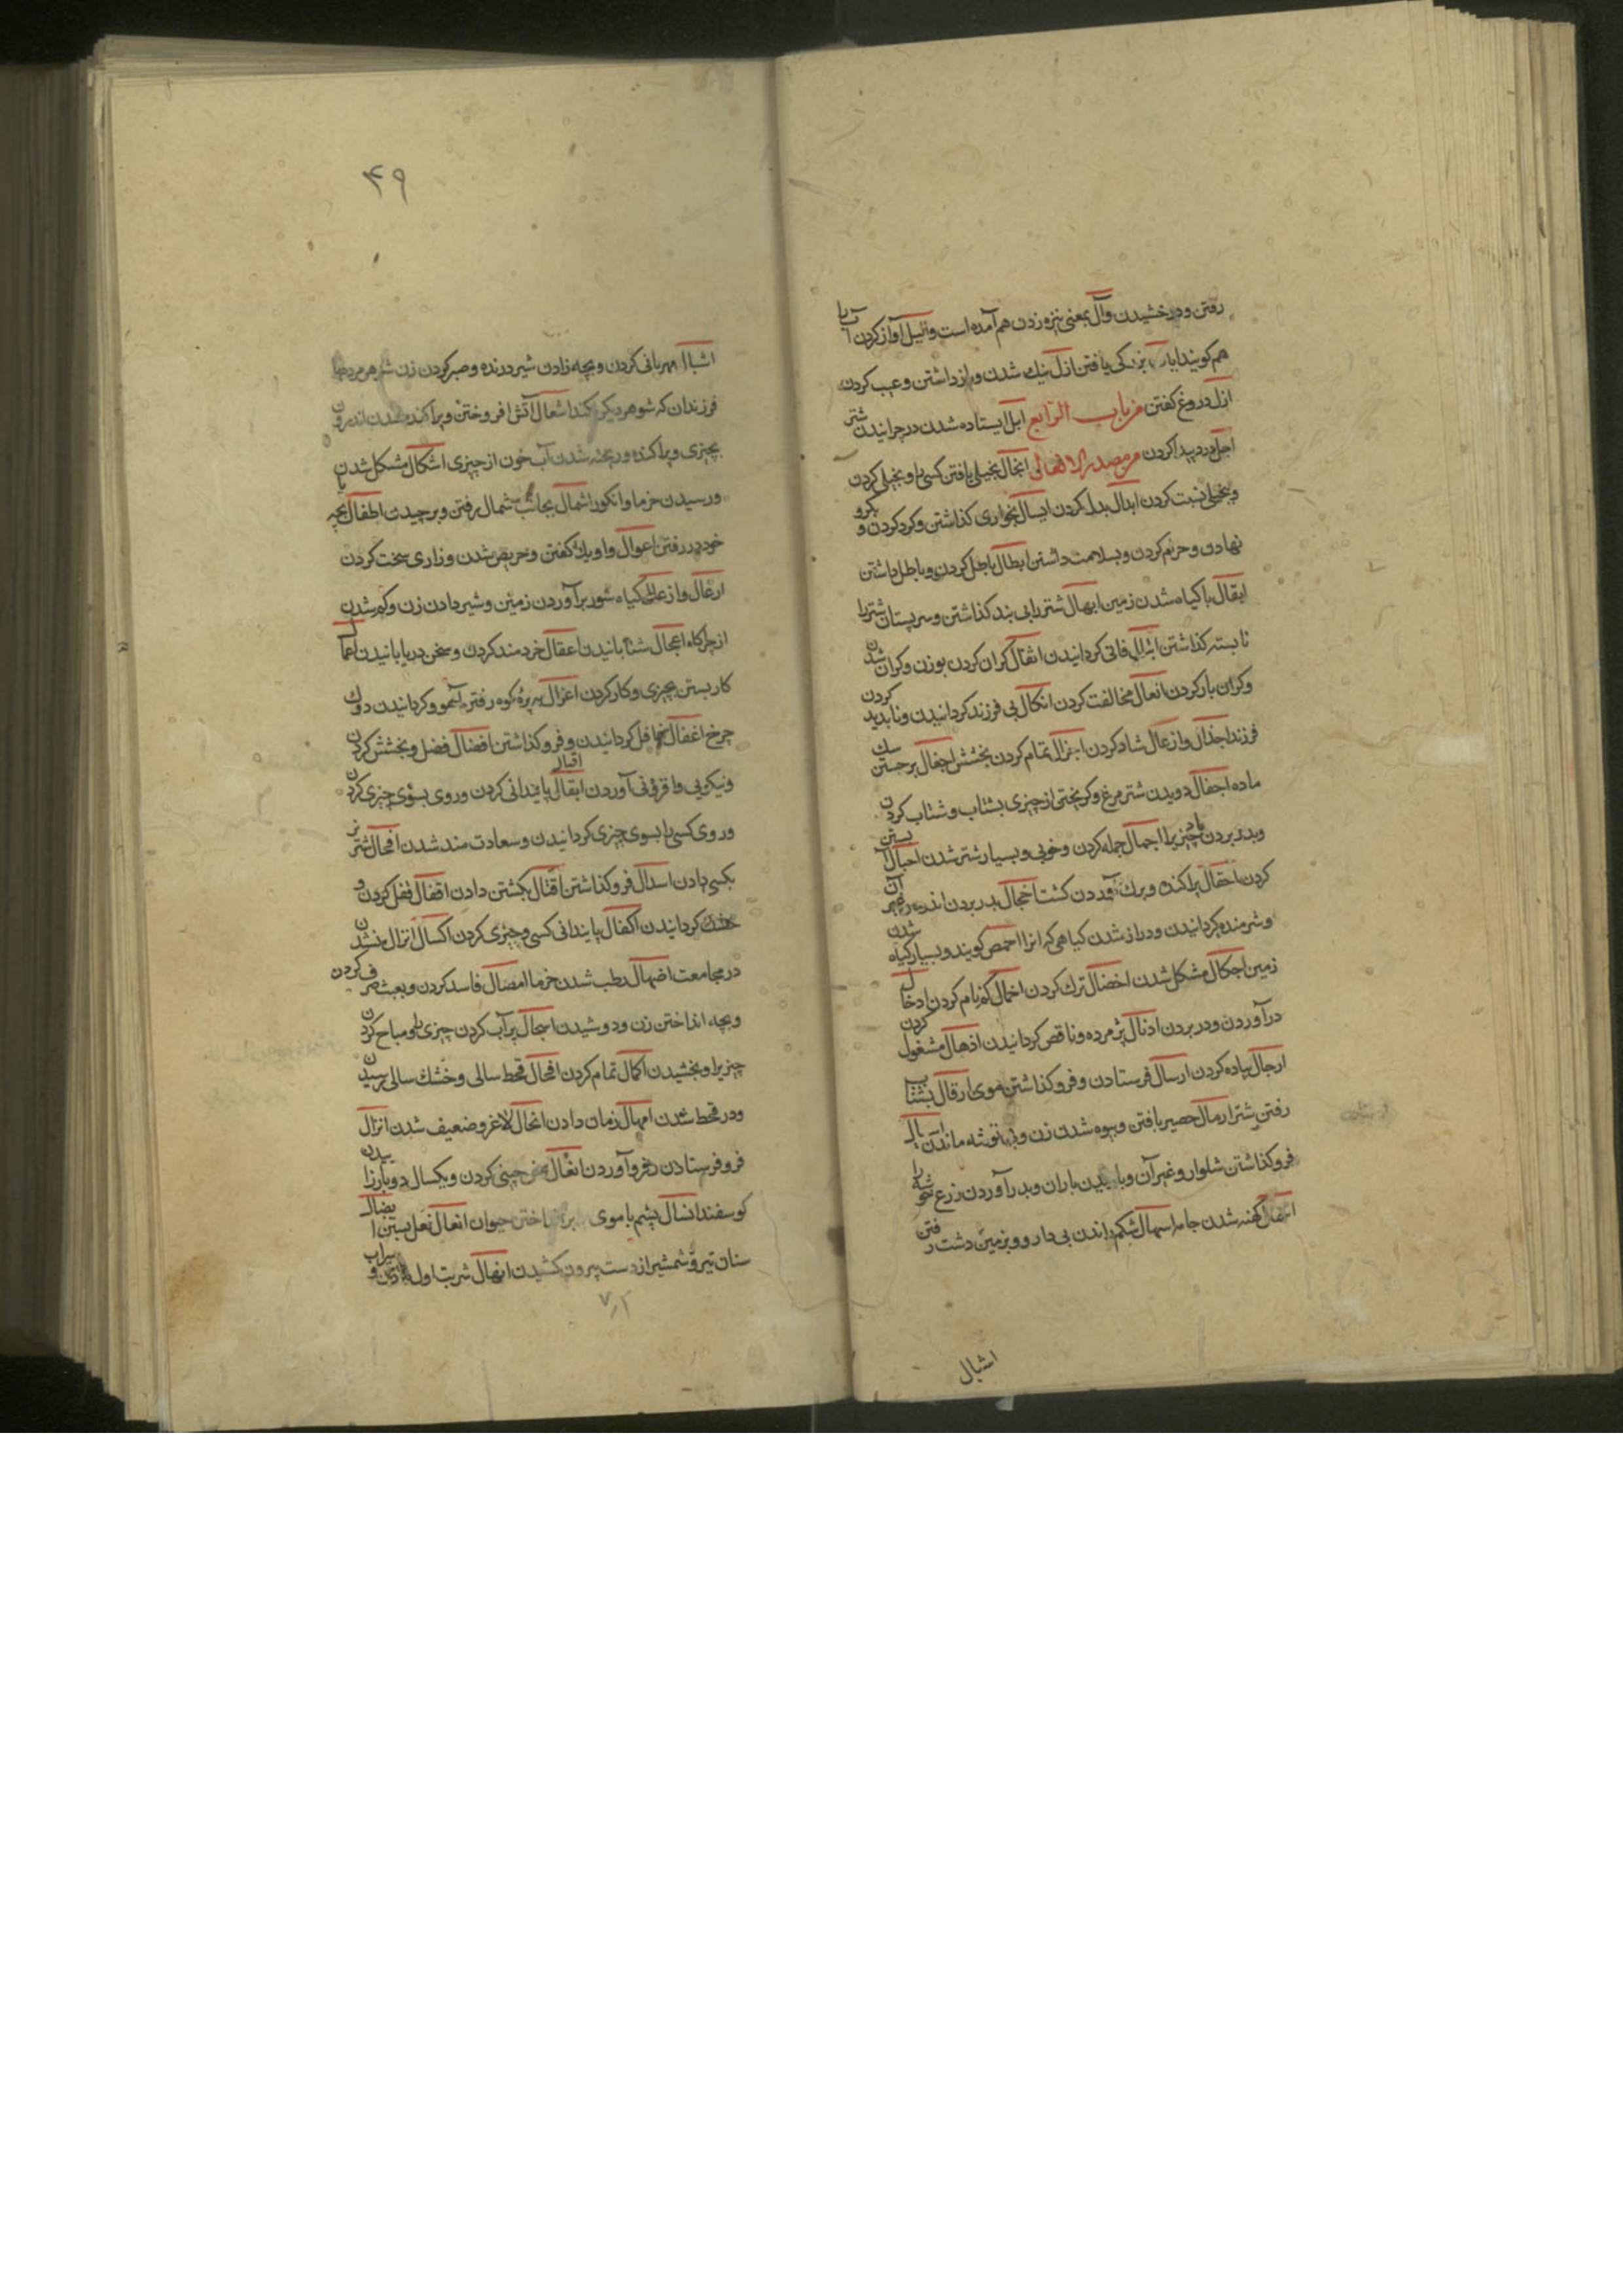 رفتن ودرخشیدن وآل بمعنی نیزه زدن هم آمده است والیل آواز کردن آب را
هم کویند ابا بزرکی یافتن ازل نیك شدن وباز داشتن وعیب کردن
ازل دروغ کفتن من باب الرابع ابل ایستاده شدن در چرانیدن شتر
اجل درد پیدا کردن من مصدر الافعال ابخال بخیل یافتن کسی را وبخیلی کردن
وبخیلی نسبت کردن ابدال بدل کردن ابسال بخواری کذاشتن وکرد کردن و بکرو
نهادن وحرام کردن وبسلامت داشتن ابطال باطل کردن وباطل داشتن
ابقال باکیاه شدن زمین ابهال شتر را بی بند کذاشتن وسر پستان شتر را
نابسته کذاشتن فانی کردانیدن اثقال کران کردن بوزن وکران شدن
وکران بار کردن انعال مخالفت کردن اثکال بی فرزند کردانیدن وناپدید کردن
فرزند اجذال واز عال شاد کردن اجزال تمام کردن بخشش اجعال برجستن سك
ماده اجفال دویدن شتر مرغ وکریختن از چیزی بشتاب وشتاب کردن
وبدر بردن باد چیزیرا اجمال جمله کردن وخوبی وبسیار شتر شدن احبال آبستن
کردن احقال پراکنده وبرك آوردن کشت اخجال بدر بردن اندوه وغیر آن
وشرمنده کردانیدن ودراز شدن کیاهی که انرا احمص کویند وبسیار کیاه شدن
زمین احکال مشکل شدن اخضال ترك کردن اخمال کم نام کردن ادخال
در آوردن ودر بردن اذبال پژمرده وناقص کردانیدن اذهال مشغول کردن
ارجال پیاده کردن ارسال فرستادن وفرو کذاشتن موی ارقال بشتاب
رفتن شتر ارمال حصیر بافتن وبیوه شدن زن وبی توشه ماندن اسبال
فرو کذاشتن شلوار وغیر آن وباریدن باران وبدر آوردن زرع خوشه را
کهنه شدن جامه اسهال شکم راندن بی دارو وبزمین دشت رفتن
اشبال
۴۹
اشبال مهربانی کردن وبچه زادن شیر درنده وصبر کردن زن
فرزندان که شوهر دیکر کند اشعال آتش افروختن وپراکنده شدن اندرون
بچیزی وپراکنده وریخته شدن آب خون از چیزی اشکال مشکل شدن
ورسیدن خرما وانکور اشمال بجانب شمال رفتن وبرچیدن اطفال بچه با
خود در رفتن اعوال واویلا کفتن وحریص شدن وزاری سخت کردن
ارغال واز عالی کیاه شور بر آوردن زمین وشیر دادن زن وکم شدن
از چراکاه اعجال شتابانیدن اعقال خردمند کردن وسخن دریابانیدن اعمال
کار بستن بچیزی وکار کردن اغزال بره کوه رفته آهو وکردانیدن دوك
چرخ اغفال غافل کردانیدن وفرو کذاشتن افضال فضل وبخشش کردن
ونیکویی وافزونی آوردن اقبال پایندانی کردن وروی بسوی چیزی کردن
وروی کسی را بسوی چیزی کردانیدن وسعادت مند شدن افحال شتر نر
بکسی دادن اسدال فرو کذاشتن اقتال بکشتن دادن اقفال قفل کردن و
خشك کردانیدن اکفال پایندانی کسی وچیزی کردن اکسال انزال نشدن
در مجامعت اضهال رطب شدن خرما امضال فاسد کردن وبعبث صرف کردن
وبچه انداختن زن ودوشیدن اسجال پر آب کردن چیزی را ومباح کردن
چیزیرا وبخشیدن اکمال تمام کردن اقحال قحط سالی وخشك سالی رسیدن
ودر قحط شدن امهال زمان دادن انحال لاغر وضعیف شدن انزال
فرو فرستادن وفرو آوردن انغال سخن چینی کردن ویکسال دوبار زاییدن
کوسفند انسال پشم یا موی انداختن حیوان انعال نعل بستن انضال
سنان تیر وشمشیر از دست بیرون کشیدن انهال شربت اول دادن وسیراب